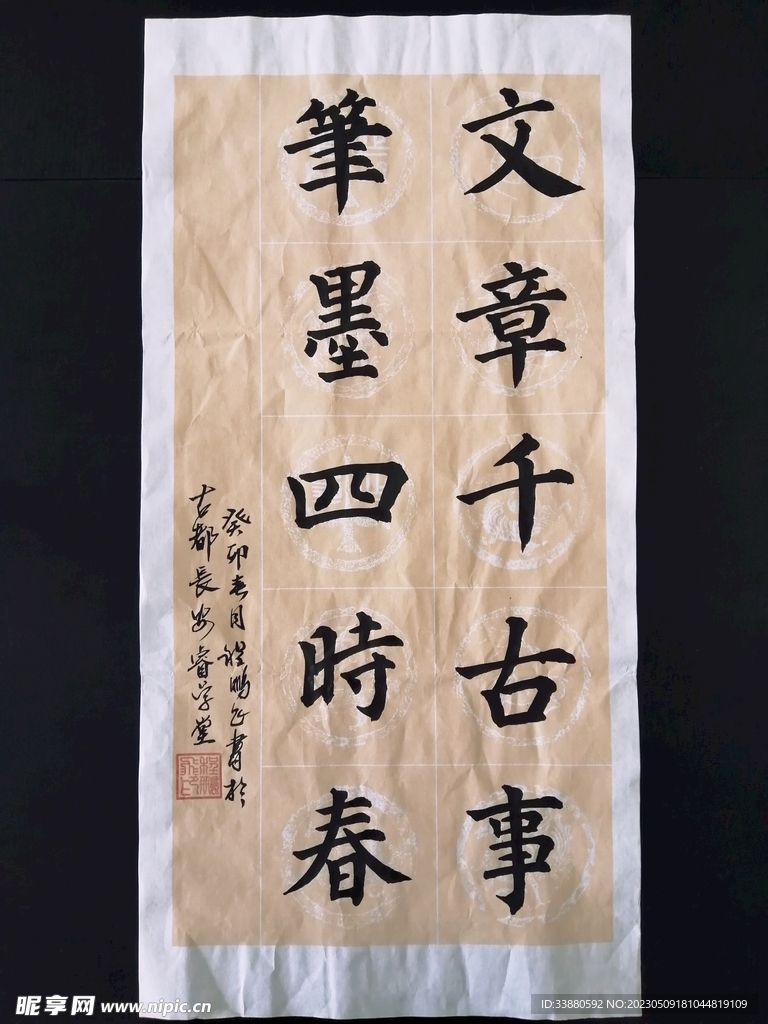 文章千古事
筆墨四時春
癸卯春月程鵬飛書於
古都長安睿学堂
昵享网 www.nipic.cn
ID:33880592 NO:20230509181044819109